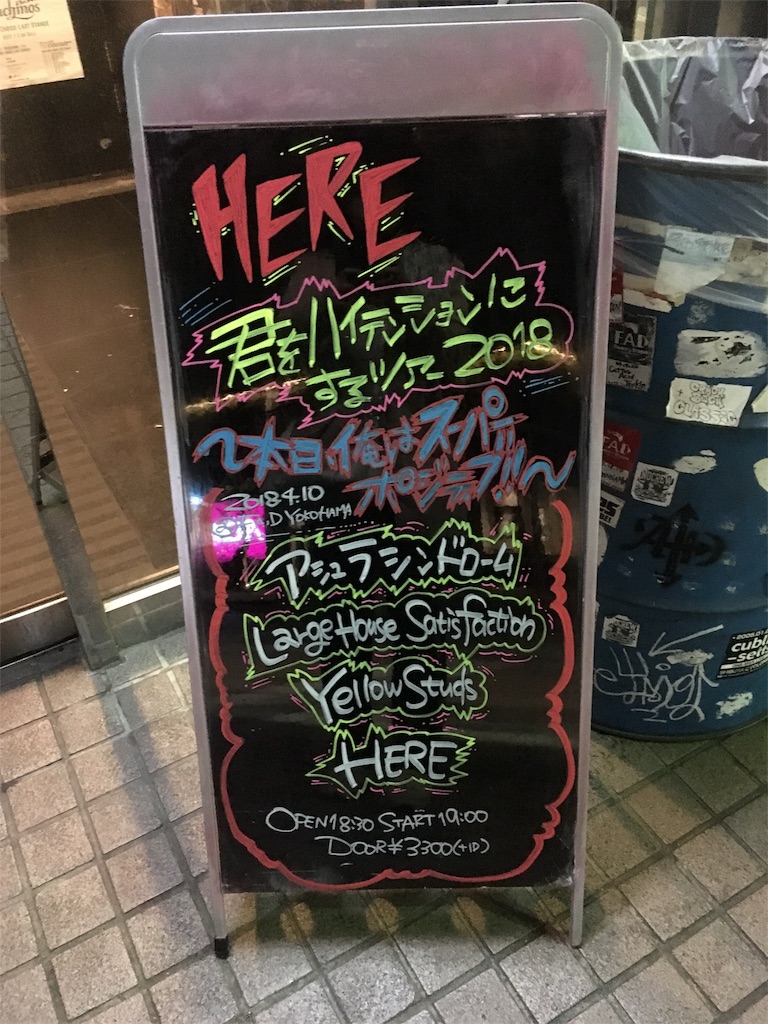 achinos
HERE
君をハイテンションに
するツアー2018
〜本日、俺はスーパー
ポジティブ!!〜
2018.4.10
YOKOHAMA
アシュラシンドローム
Large House Satisfaction
Yellow Studs
HERE
OPEN 18:30 START 19:00
DOOR ¥3300(+1D)
FAD
FAD
CLASSIC